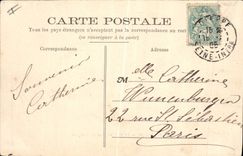 CARTE POSTALE
Tous les pays étrangers n'acceptent pas la correspondance au recto
(se renseigner à la poste)
Souvenir
Catherine
Melle Catherine
Wunenburger
22 rue St Sébastien
Paris